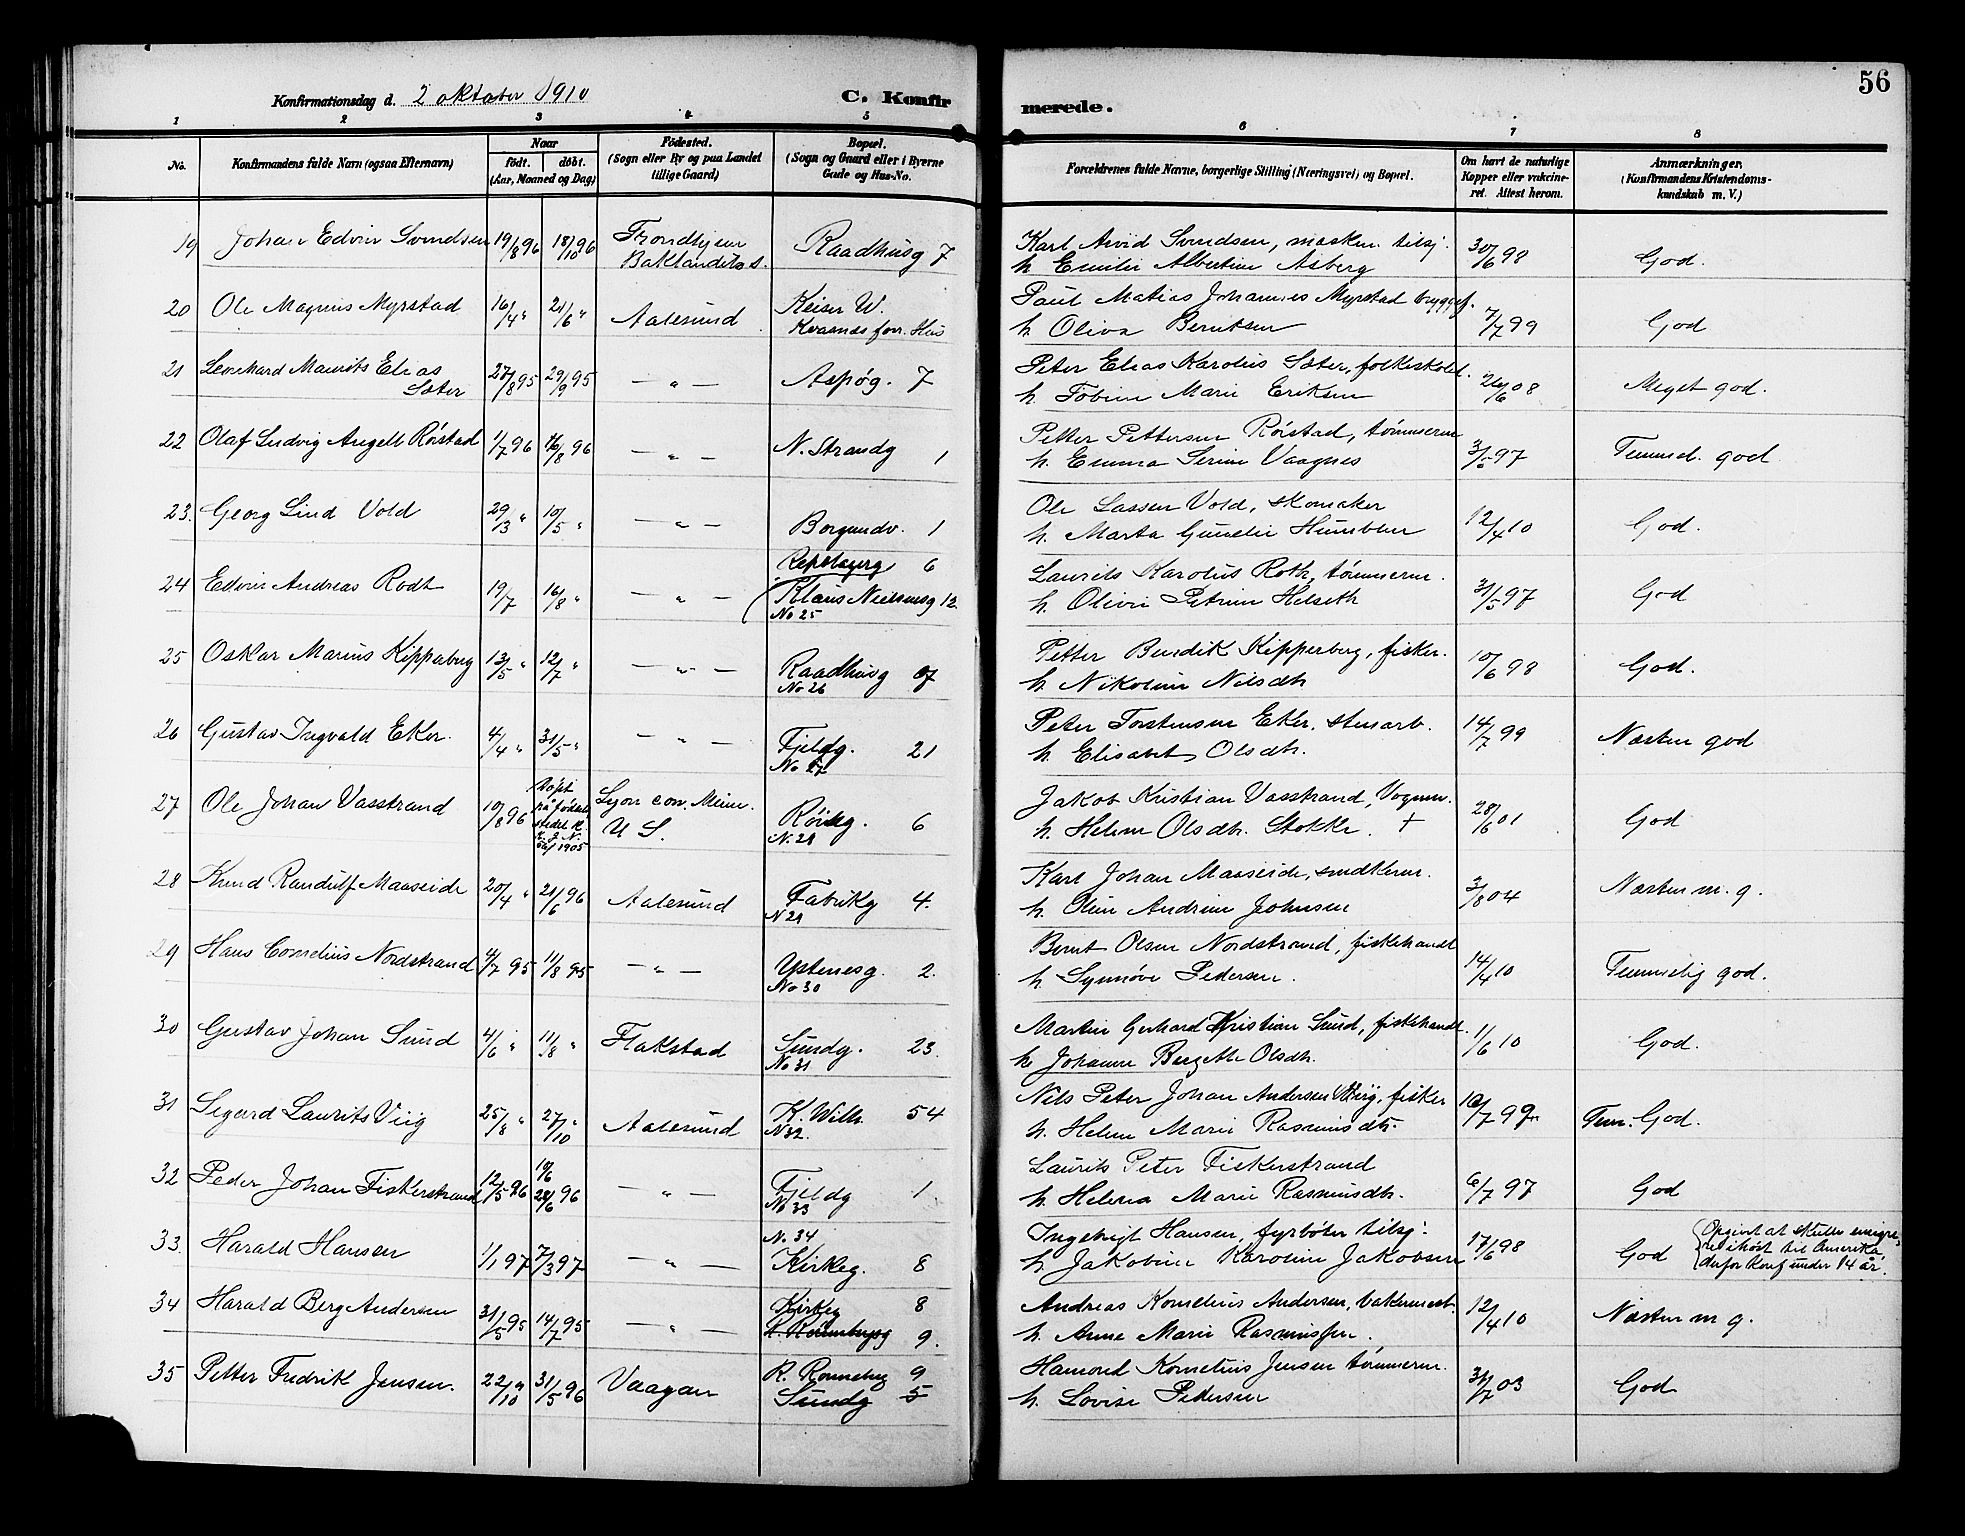 56
Konfirmationsdag d. 2 oktober 1910 C. Konfir merede.
1 2 3 4 5 6 7 8
No. Konfirmandens fulde Navn (ogsaa Efternavn) Naar født. døbt. (Aar, Maaned og Dag) Fødested. (Sogn eller By og paa Landet tillige Gaard) Bopæl. (Sogn og Gaard eller i Byerne Gade og Hus-No. Forældrenes fulde Navne, borgerlige Stilling (Næringsvei) og Bopæl. Om havt de naturlige Kopper eller vakcineret. Attest herom. Anmærkninger. (Konfirmandens Kristendomskundskab m. V.)
19 Johan Edvin Svendsen 19/8 96 18/10 96 Trondhjem Baklandets s. Raadhusg 7 Karl Arvid Svendsen, maskin. tilsj.
h. Emilie Albertine Asberg 30/6 98 God.
20 Ole Magnus Myrstad 16/4 " 21/6 " Aalesund Keiser W. Kvasnæs forr. Hus Paul Matias Johannes Myrstad bryggef.
h. Oliva Berntsen 7/7 99 God
21 Leonhard Maurits Elias Sæter 27/8 95 29/9 95 — " — Aspøg. 7 Peter Elias Karolus Sæter, folkeskolel.
h. Tobine Marie Eriksen 26/6 08 Meget god.
22 Olaf Ludvig Angell Røistad 1/7 96 16/8 96 — " — N. Strandg 1 Petter Pettersen Røistad, tømmerm
h. Emma Serine Vaagnes 3/5 97 Temmel. god
23. Georg Lind Vold 29/13 " 10/5 " — " — Borgundv. 1 Ole Lassen Vold, skomaker
h. Marta Gunelie Humblen 12/4 10 God.
24 Edvin Andreas Rodt 19/7 16/8 " — " — Repslagerg 6 (Klaus Nielsensg 12 Laurits Karolus Roth, tømmerm.
No 25 h. Olivie Petrine Helseth 31/5 97 God
25 Oskar Marius Kipperberg 13/5 " 12/7 " — " — Raadhusg 7 Petter Bendik Kipperberg, fisker.
No 26 h. Nikoline Nilsdtr 10/6 98 God.
26 Gustav Ingvald Eker. 4/4 " 31/5 " — " — Fjeldg. 21 Peter Torstensen Eker, stenarb.
No 27 h. Elisabet Olsdtr. 14/7 99 Næsten god
27 Ole Johan Vasstrand 10/8 96 døpt på fødestedet 1905 Lyon con. Minn. U S. Røiseg. 6 Jakob Kristian Vasstrand, Vognm.
N. 28 h. Helene Olsdtr. Stokke. + 28/6 01 God
28 Knud Randulf Maaseide 20/4 " 21/6 96 Aalesund Fabrikg 4. Karl Johan Maaseide, snedkerm.
N 29 h. Oline Andrine Johnsen 3/8 04 Næsten m. g.
29 Hans Cornelius Nordstrand 4/7 95 11/8 95 — " — Ystenesg. 2. Bernt Olsen Nordstrand, fiskehandl
No 30 h. Synnøve Pedersen. 14/4 10 Temmelig god.
30 Gustav Johan Sund 4/6 " 11/8 " Flakstad Sundg. 23. Martin Gerhard Kristian Sund, fiskehandl.
No 31 h. Johanne Bergethe Olsdtr. 1/6 10 God.
31 Sigurd Laurits Viig 25/8 " 27/10 " Aalesund K. Wilh. 54 Nils Peter Johan Andersen Viig, fisker
N 32. h. Helene Marie Rasmusdtr. 16/7 99 Tem. God.
32 Peder Johan Fiskerstrand 12/5 96 10/6 28/6 96 — " — Fjeldg 1. Laurits Peter Fiskerstrand
No 33 h. Helena Marie Rasmusdtr. 6/7 97 God
33. Harald Hansen 1/1 97 7/3 97 — " — N. 34 Kirkeg. 8 Ingebrigt Hansen, fyrbøter tilsj.
h. Jakobine Karoline Jakobsen 17/6 98 God (Opgivet at skulle emigrere ihøst til Amerika, derfor konf under 14 år.
34 Harald Berg Andersen 31/5 95 14/7 95 — " — Kirkeg 8 R. Rønnebergsg 9. Andreas Kornelius Andersen, bakermest.
h. Anne Marie Rasmussen. 12/4 10 Næsten m g.
35 Petter Fredrik Jensen. 22/10 " 31/5 96 Vaagan R. Ronneberg 9 Sundg 5 Hamond Kornelius Jensen tømmerm.
h. Lovise Pedersen 31/7 03 God